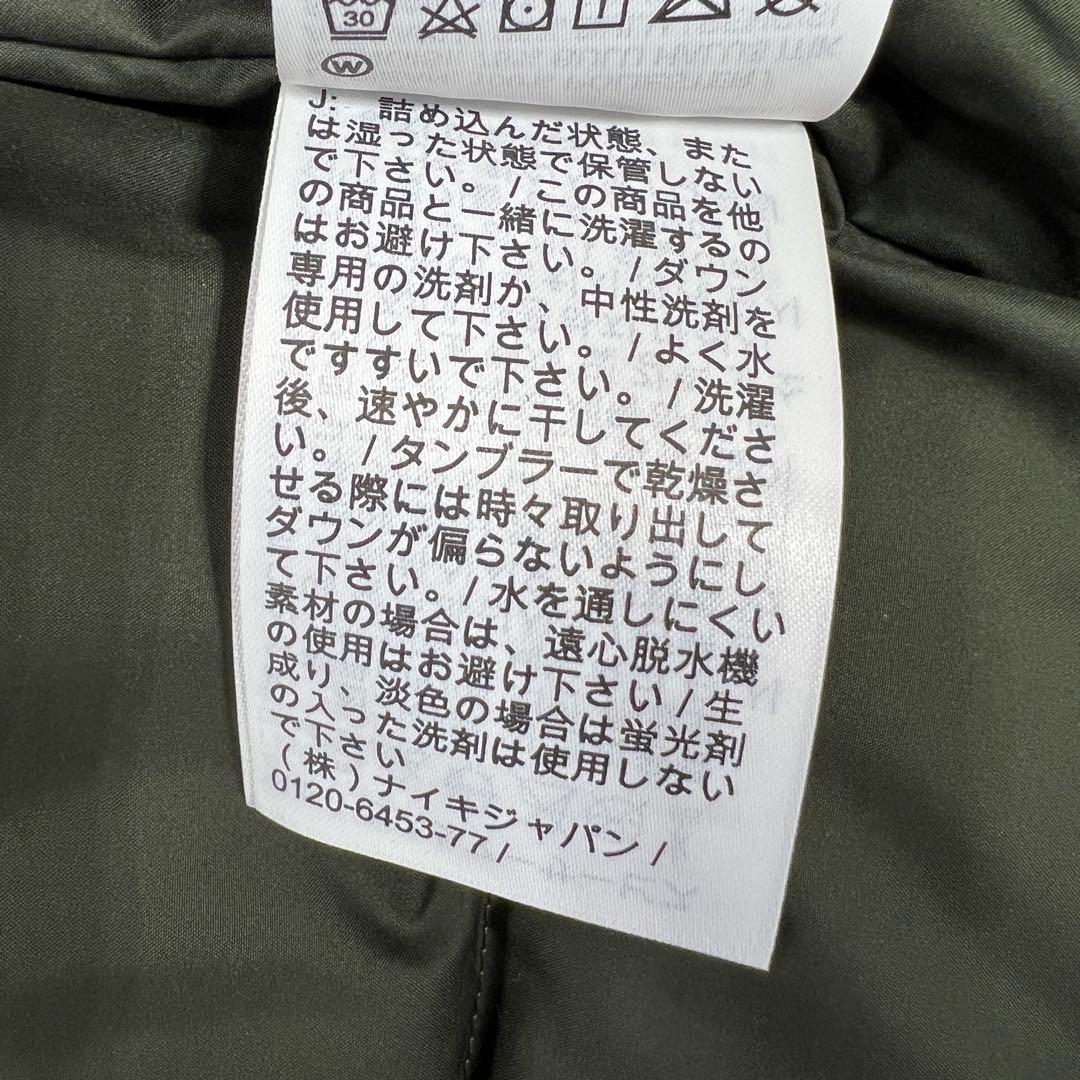 30
W
J: 詰め込んだ状態、また
は湿った状態で保管しない
で下さい。/この商品を他
の商品と一緒に洗濯するの
はお避け下さい。/ダウン
専用の洗剤か、中性洗剤を
使用して下さい。/よく水
ですすいで下さい。/洗濯
後、速やかに干してくださ
い。/タンブラーで乾燥さ
せる際には時々取り出して
ダウンが偏らないようにし
て下さい。/水を通しにくい
素材の場合は、遠心脱水機
の使用はお避け下さい/生
成り、淡色の場合は蛍光剤
の入った洗剤は使用しない
で下さい
(株)ナイキジャパン/
0120-6453-77/